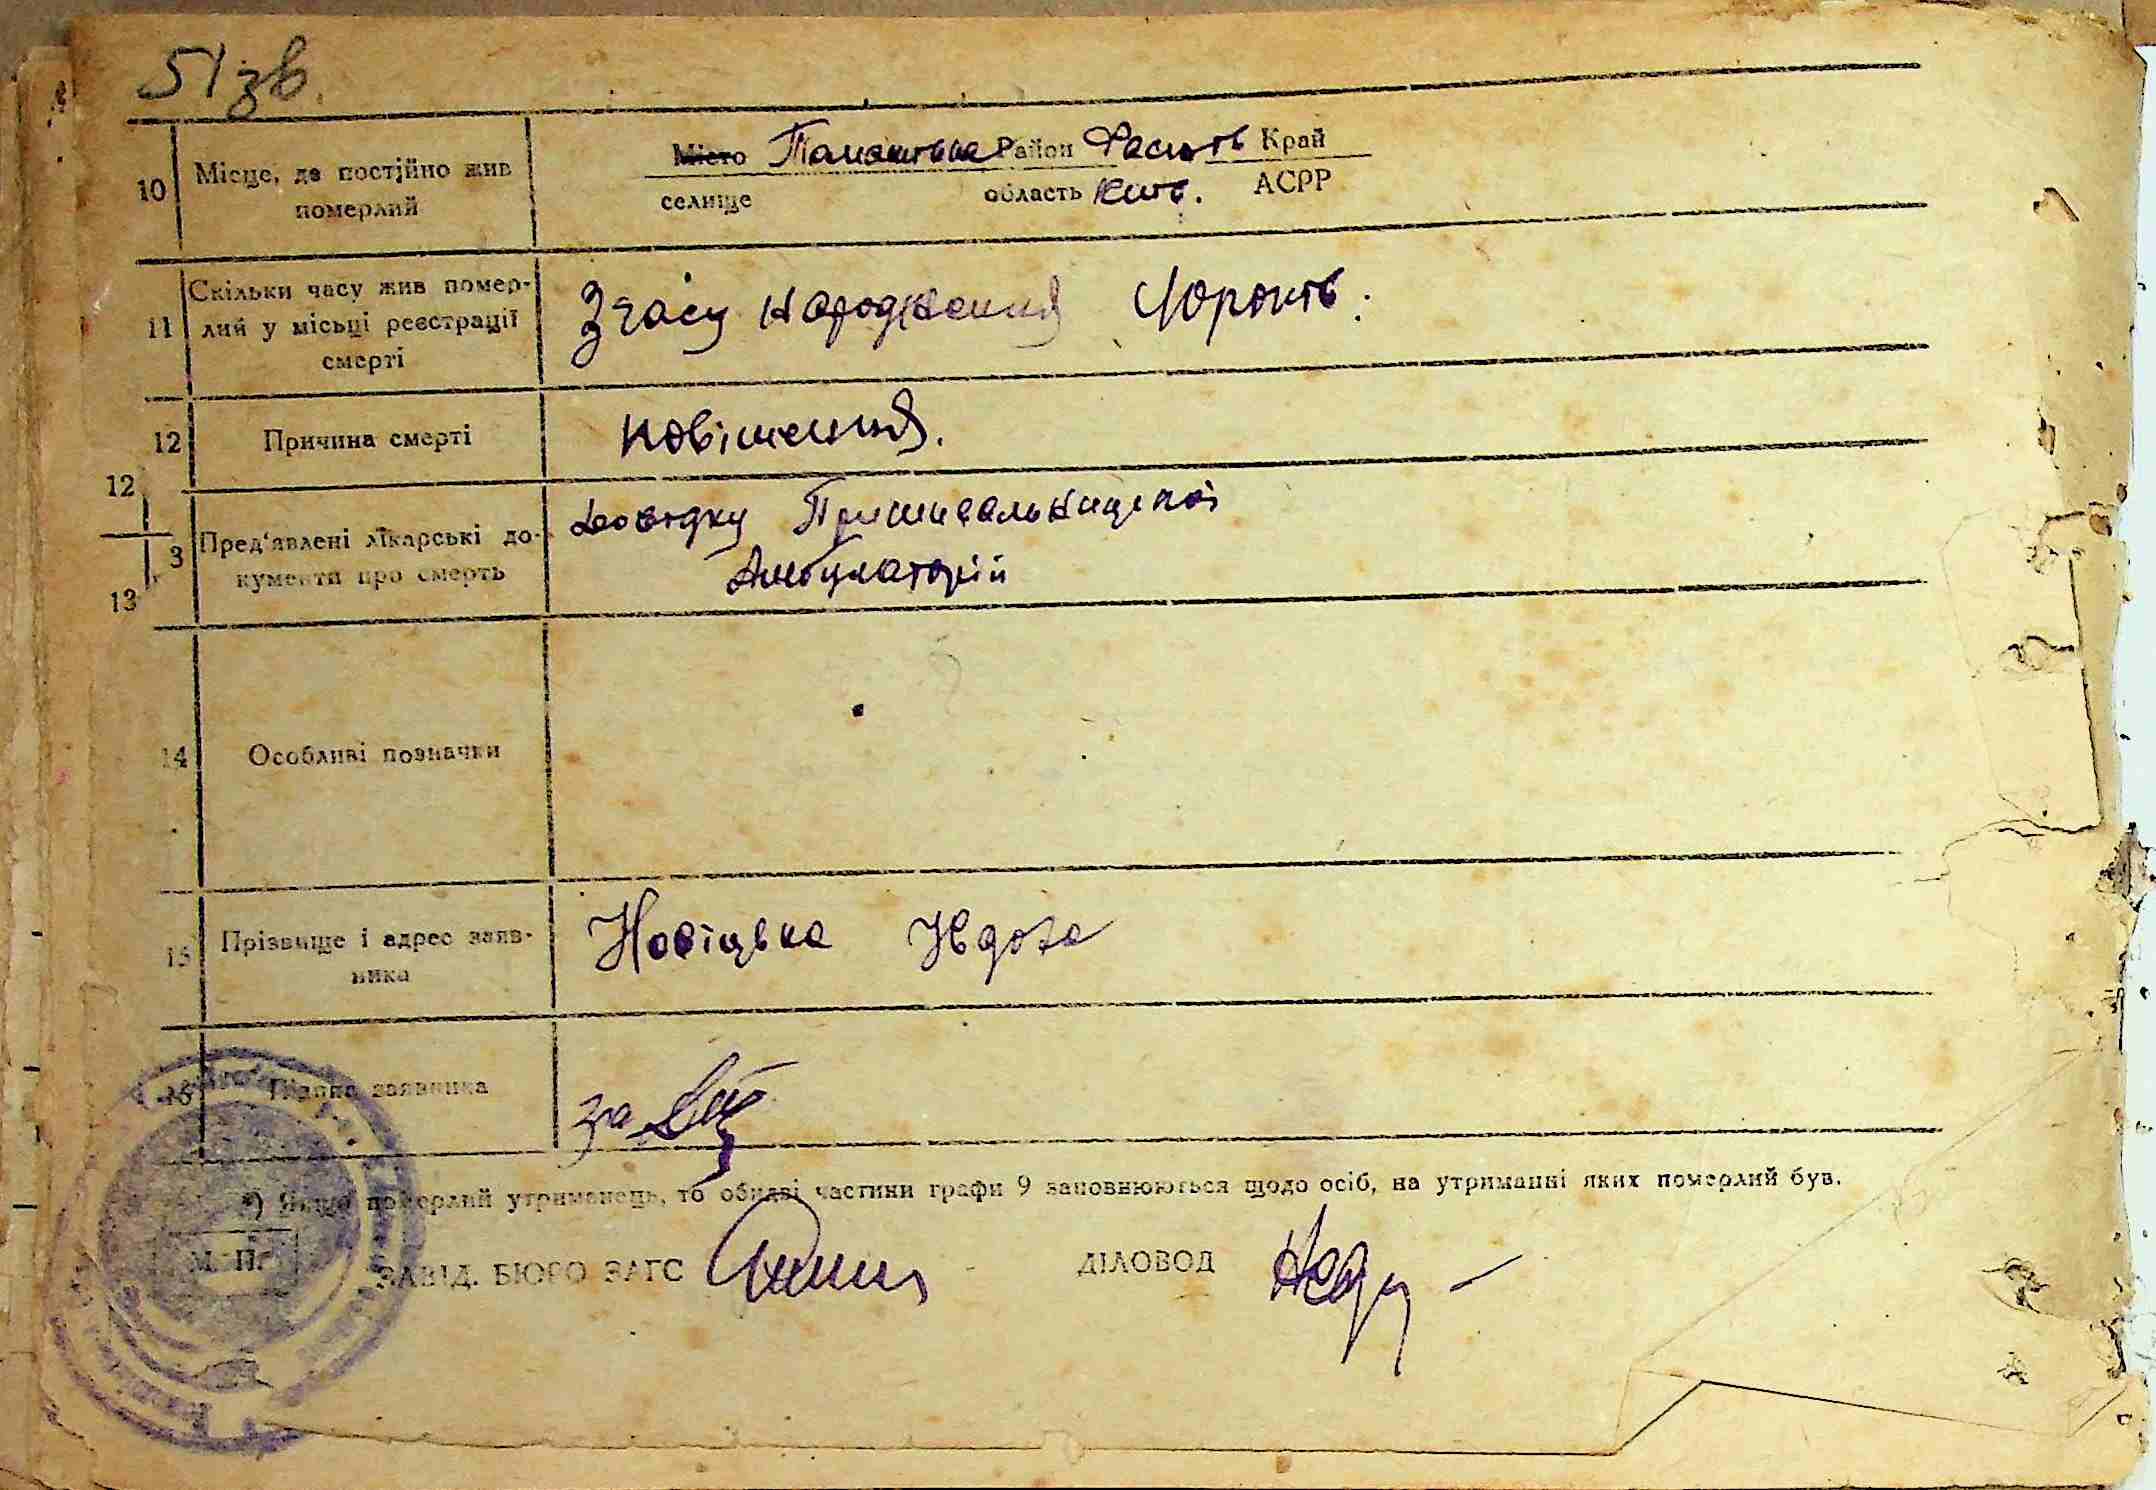 51 зв.
Місто Томашівка Район Фастів Край
селище область Київ. АСРР
10 Місце, де постійно жив
померлий
11 Скільки часу жив помер-
лий у місьці реєстрації
смерті
З часу народження
12 Причина смерті
повішення.
12
3
13
Пред'явлені лікарські до-
кументи про смерть
Довідку
Амбулаторій
14 Особливі позначки
15 Прізвище і адрес заяв-
ника
Новіцька Явдоха
16 Підпис заявника
за
*) Якщо померлий утриманець, то обидві частини графи 9 заповнюються щодо осіб, на утриманні яких померлий був.
М. П.
ЗАВІД. БЮРО ЗАГС ДІЛОВОД